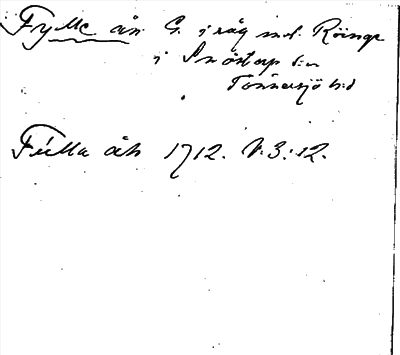 Fylle ån G. i råg mot Röinge
i Snöstorp s:n
Tönnersjö h:d
Fülla åh 1712. V:3:12.